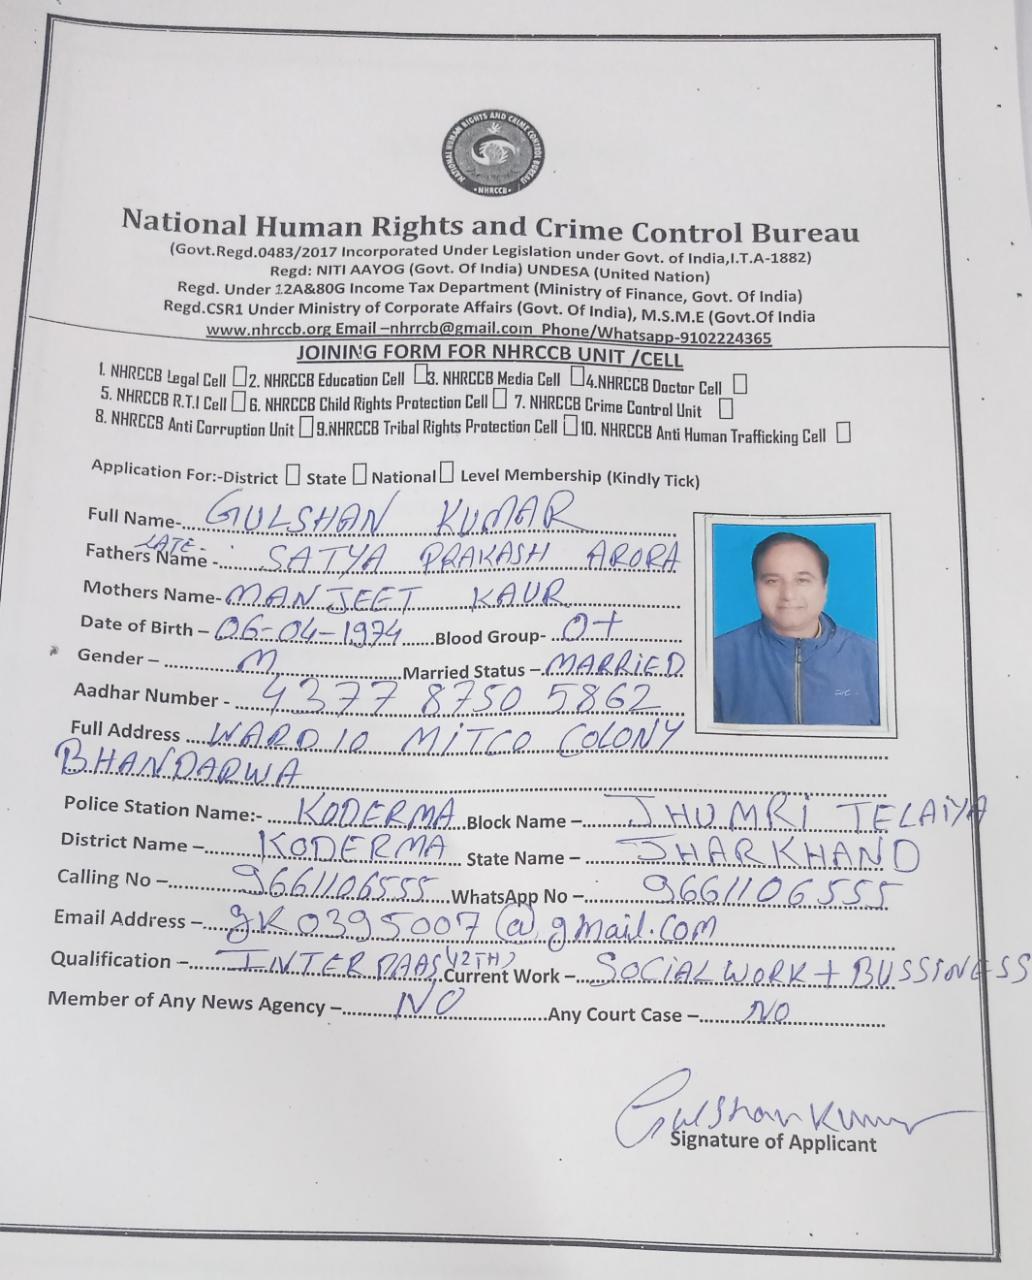 NATIONAL HUMAN RIGHTS AND CRIME CONTROL BUREAU
• NHRCCB •
National Human Rights and Crime Control Bureau
(Govt.Regd.0483/2017 Incorporated Under Legislation under Govt. of India,I.T.A-1882)
Regd: NITI AAYOG (Govt. Of India) UNDESA (United Nation)
Regd. Under 12A&80G Income Tax Department (Ministry of Finance, Govt. Of India)
Regd.CSR1 Under Ministry of Corporate Affairs (Govt. Of India), M.S.M.E (Govt.Of India
www.nhrccb.org Email –nhrrcb@gmail.com Phone/Whatsapp-9102224365
JOINING FORM FOR NHRCCB UNIT /CELL
1. NHRCCB Legal Cell 2. NHRCCB Education Cell 3. NHRCCB Media Cell 4.NHRCCB Doctor Cell
5. NHRCCB R.T.I Cell 6. NHRCCB Child Rights Protection Cell 7. NHRCCB Crime Control Unit
8. NHRCCB Anti Corruption Unit 9.NHRCCB Tribal Rights Protection Cell 10. NHRCCB Anti Human Trafficking Cell
Application For:-District State National Level Membership (Kindly Tick)
Full Name- GULSHAN KUMAR
Fathers Name - LATE - SATYA PRAKASH ARORA
Mothers Name- MANJEET KAUR
Date of Birth – 06-04-1974 Blood Group- O+
Gender – M Married Status – MARRIED
Aadhar Number - 4377 8750 5862
Full Address WARD 10 MITCO COLONY
BHANDARWA
Police Station Name:- KODERMA Block Name – JHUMRI TELAIYA
District Name – KODERMA State Name – JHARKHAND
Calling No – 9661106555 WhatsApp No – 9661106555
Email Address – gk0395007@gmail.com
Qualification – INTER PAAS (12TH) Current Work – SOCIAL WORK + BUSSINESS
Member of Any News Agency – NO Any Court Case – NO
Gulshan Kumar
Signature of Applicant